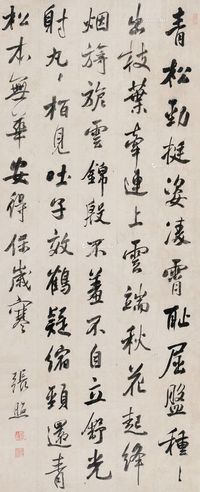 青松勁挺姿凌霄恥屈盤種〻
出枝葉牽連上雲端秋花起絳
烟旖旎雲錦殷不羞不自立舒光
射丸〻柏見吐子效鶴疑縮頸還青
松本無華安得保歲寒
張照